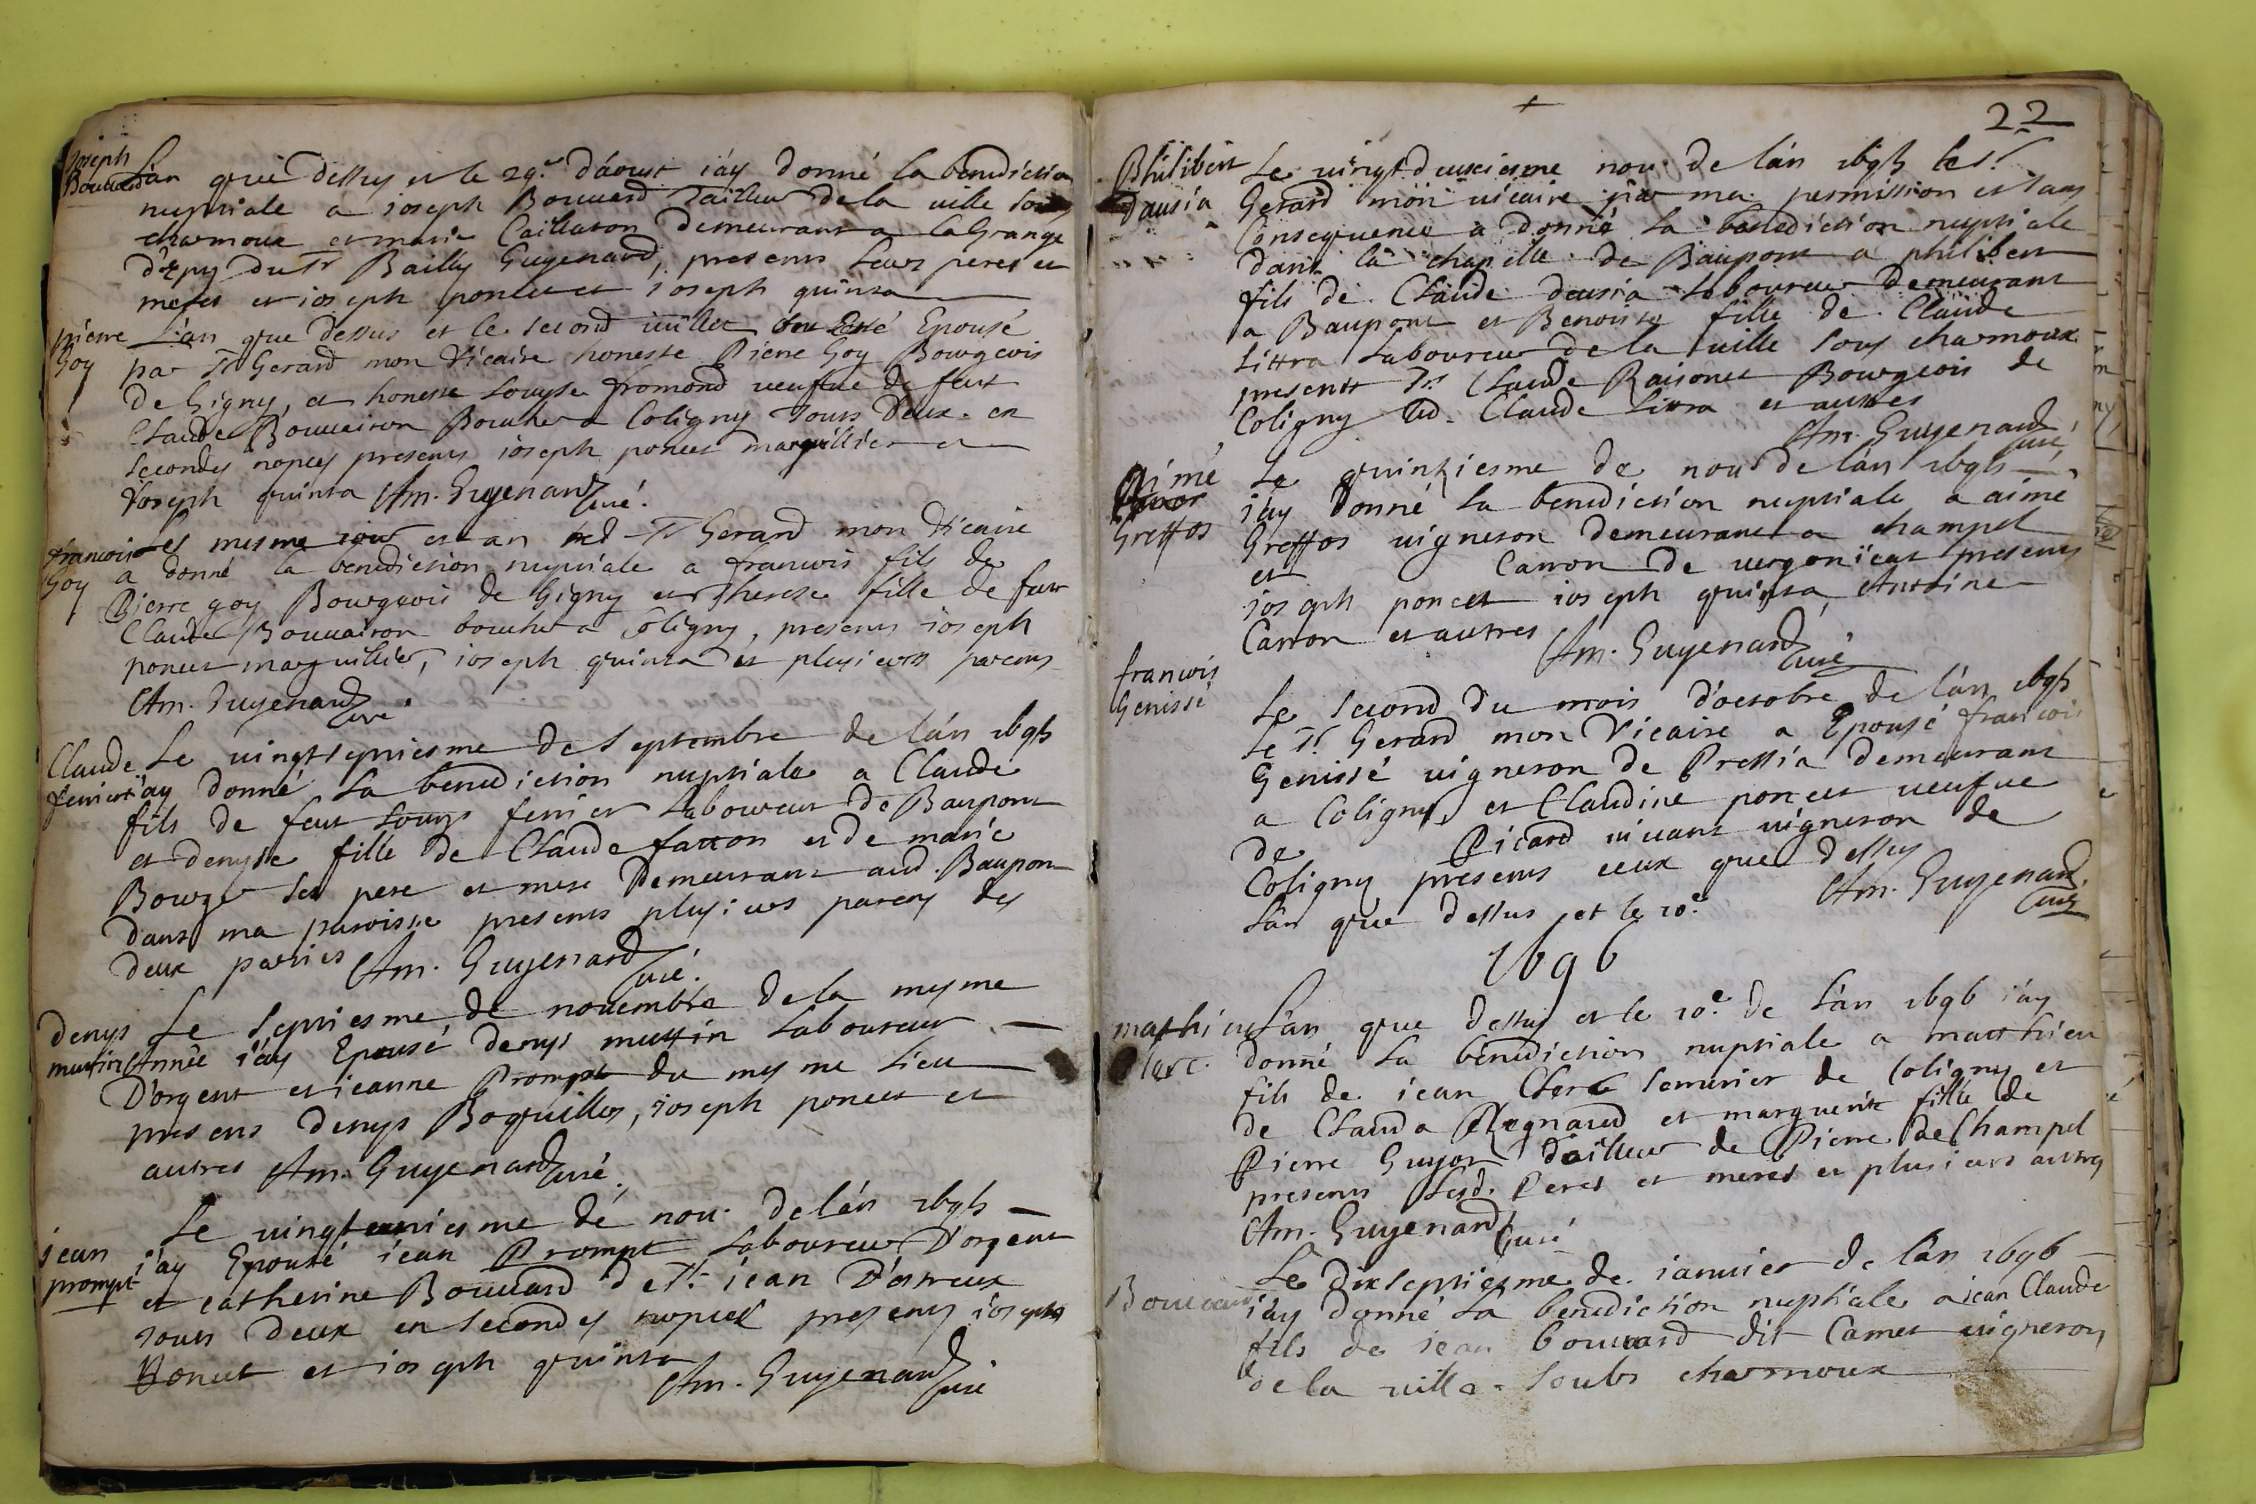 Joseph
Bouuard
L'an que dessus et le 29.e d'áoust i'áy donné la benediction
nuptiale a ioseph Bouuard Tailleur de la uille sous
charmoux et marie Caillaton demeurant a la Grange
d'Epy du Sr Bailly Guyenard, presens leurs peres et
meres et ioseph poncet et ioseph quinsa
pierre
Goy
L'an que dessus et le second iuillet Epousé
par Sr Gerard mon Vicaire honeste Pierre Goy Bourgeois
de Gigny, et honeste Louyse fromond ueufue de feut
Claude Bouuairon Boucher a Coligny Tous deux en
secondes nopces presens ioseph poncet marguillier et
Joseph quinsa Am. Guyenard curé.
francois
Goy
Les mesme iour et an Sr Gerard mon Vicaire
a donné la benediction nuptiale a francois fils de
Pierre goy Bourgeois de Gigny et Therese fille de feut
Claude Bouuairon boucher a Coligny, presens ioseph
poncet marguillier, ioseph quinsa et plusieurs parens
Am. Guyenard curé.
Claude
ferrier
Le uingtseptiesme de septembre de l'án 1695
i'áy donné la benediction nuptiale a Claude
fils de feut Louys ferrier Laboureur de Baupont
et denyse fille de Claude fatton et de marie
Bourge ses pere et mere Demeurant aud. Baupont
dans ma paroisse presens plusieurs parens des
deux parties Am. Guyenard curé.
denys
muttin
Le septiesme de nouembre de la mesme
Année i'áy Epousé denys muttin Laboureur
D'orgent et ieanne Prompt du mesme lieu
presens denys Boquillos, ioseph poncet et
autres Am. Guyenard curé.
iean
prompt
Le uingt uniesme de nou. de l'án 1695
i'áy Epousé iean Prompt Laboureur D'orgent
et catherine Bouuard de St. iean D'estreux
tous deux en secondes nopces presens ioseph
Poncet et ioseph quinsa
Am. Guyenard curé
22
Philibert
dausia
Le uingtdeuxiesme nou. de l'án 1695 le Sr
Gerard mon uicaire par ma permission et sans
Consequence a donné la benediction nuptiale
dans la chapelle de Baupont a philibert
fils de Claude dausia Laboureur demeurant
a Baupont et Benoiste fille de Claude
Littra Laboureur de la uille sous charmoux
presents Srs Claude Raisonet Bourgeois de
Coligny Led. Claude Littra et autres
Am. Guyenard curé
Aimé
Greffos
Le quinziesme de nou. de l'án 1695
i'áy donné la benediction nuptiale a aimé
Greffos uigneron demeurant a champel
et Carron de uergonieat presens
ioseph poncet ioseph quinsa, Antoine
Carron et autres Am. Guyenard curé
francois
Genissé
Le second du mois d'octobre de l'án 1695
Le Sr. Gerard mon Vicaire a Epousé francois
Genissé uigneron de Pressia demeurant
a Coligny, et Claudine poncet ueufue
de Picard uiuant uigneron de
Coligny presens ceux que dessus
Am. Guyenard. curé
L'án que dessus et le 10.e
1696
mathieu
clerc.
L'an que dessus et le 10.e de L'án 1696 i'áy
donné La benediction nuptiale a matthieu
fils de iean Clerc serrurier de Coligny et
de Clauda Regnaud et marguerite fille de
Pierre Guyon Tailleur de Pierre de Champel
presens Lesd. Peres et meres et plusieurs autres
Am. Guyenard curé
Bouuard
Le dixseptiesme de ianuier de l'án 1696
i'áy donné la benediction nuptiale a iean Claude
fils de iean bouuard dit Camet uigneron
de la uille soubs charmoux